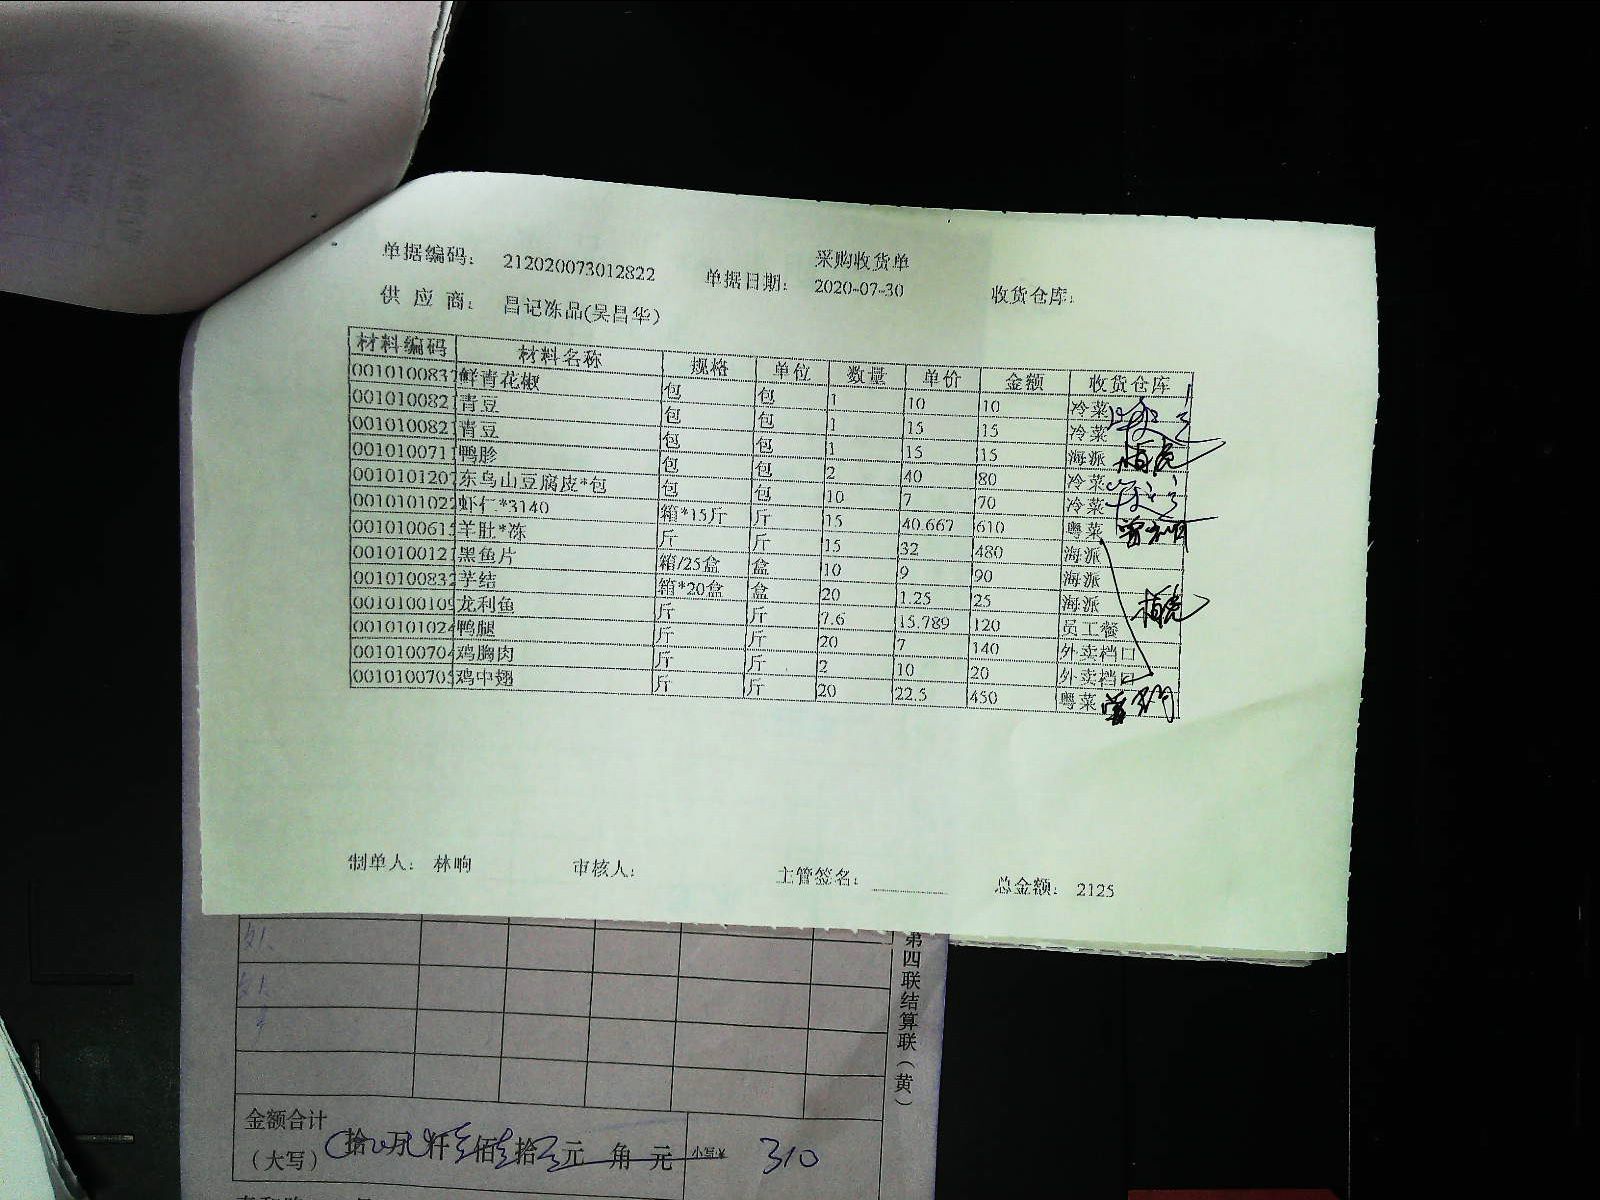 采购收货单
单据编码： 212020073012822 单据日期： 2020-07-30 收货仓库：
供 应 商： 昌记冻品(吴昌华)
材料编码 材料名称 规格 单位 数量 单价 金额 收货仓库
001010083 鲜青花椒 包 包 1 10 10 冷菜
001010082 青豆 包 包 1 15 15 冷菜
001010082 青豆 包 包 1 15 15 海派
001010071 鸭胗 包 包 2 40 80 冷菜
001010120 东乌山豆腐皮*包 包 包 10 7 70 冷菜
001010102 虾仁*3140 箱*15斤 斤 15 40.667 610 粤菜
001010061 羊肚*冻 斤 斤 15 32 480 海派
001010012 黑鱼片 箱/25盒 盒 10 9 90 海派
001010083 芋结 箱*20盒 盒 20 1.25 25 海派
001010010 龙利鱼 斤 斤 7.6 15.789 120 员工餐
001010102 鸭腿 斤 斤 20 7 140 外卖档口
001010070 鸡胸肉 斤 斤 2 10 20 外卖档口
001010070 鸡中翅 斤 斤 20 22.5 450 粤菜
制单人： 林响 审核人： 主管签名： 总金额： 2125
第四联结算联（黄）
金额合计
（大写） 拾 万 仟 佰 拾 元 角 元 小写¥ 310